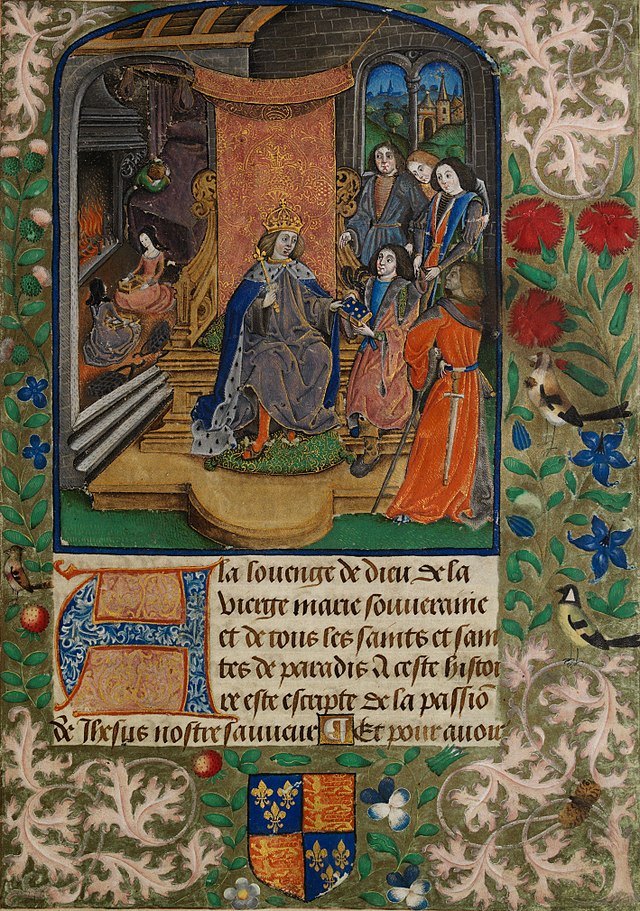 A la louenge de dieu de la
vierge marie souveraine
et de tous les saints et sain
tes de paradis A ceste histoi
re est escripte de la passiõ
de Ihesus nostre sauveur Et pour avoir